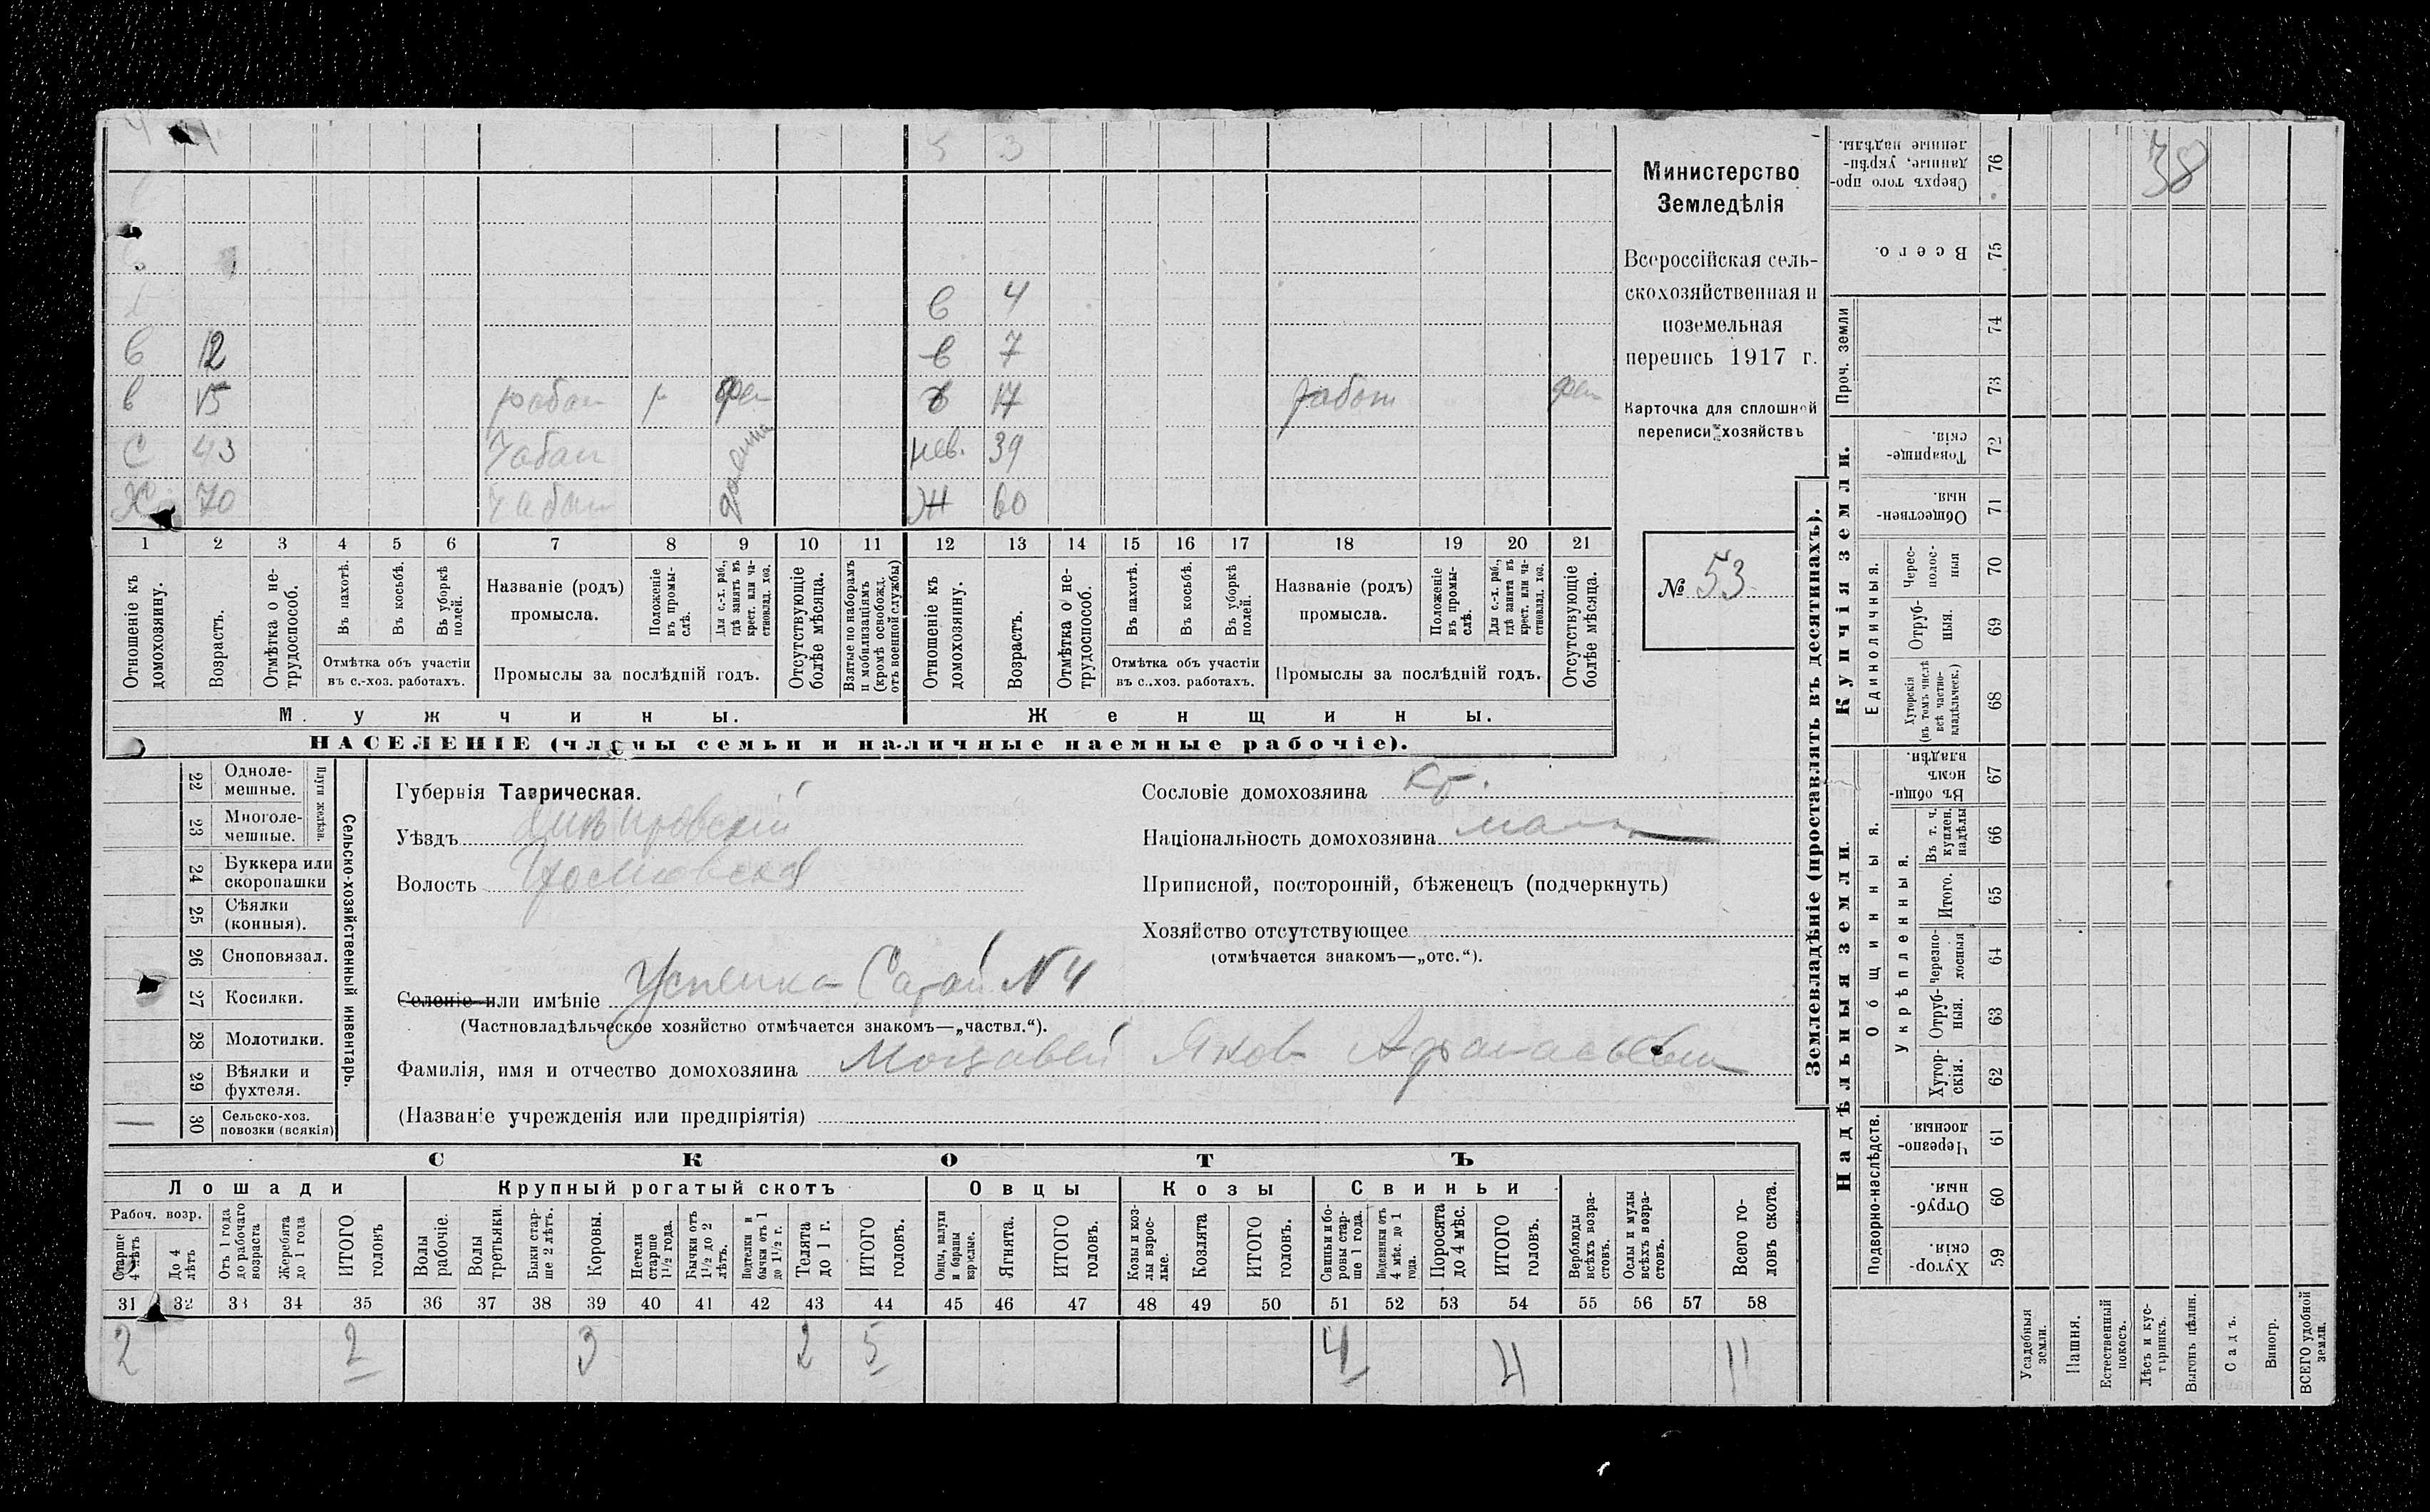 38
5 3
в 4
в 12 в 7
в 15 рабоч р в 17 работ
С 43 Чабан нев. 39
Х 70 Чабан Ж 60
1 2 3 4 5 6 7 8 9 10 11 12 13 14 15 16 17 18 19 20 21
Отношеніе къ домохозяину.
Возрастъ.
Отмѣтка о нетрудоспособ.
Въ пахотѣ.
Въ косьбѣ.
Въ уборкѣ полей.
Отмѣтка объ участіи
въ с.-хоз. работахъ.
Названіе (родъ)
промысла.
Положеніе въ промыслѣ.
Для с.-х. раб., гдѣ занятъ въ крест. или частновлад. хоз.
Промыслы за послѣдній годъ.
Отсутствующіе болѣе мѣсяца.
Взятые по наборамъ и мобилизаціямъ (кромѣ освобожд. отъ военной службы)
Отношеніе къ домохозяину.
Возрастъ.
Отмѣтка о нетрудоспособ.
Въ пахотѣ.
Въ косьбѣ.
Въ уборкѣ полей.
Отмѣтка объ участіи
въ с.-хоз. работахъ.
Названіе (родъ)
промысла.
Положеніе въ промыслѣ.
Для с.-х. раб., гдѣ занята въ крест. или частновлад. хоз.
Промыслы за послѣдній годъ.
Отсутствующіе болѣе мѣсяца.
Мужчины.
Женщины.
НАСЕЛЕНІЕ (члены семьи и наличные наемные рабочіе).
Министерство
Земледѣлія
Всероссійская сель-
скохозяйственная и
поземельная
перепись 1917 г.
Карточка для сплошной
переписи хозяйствъ
№ 53
22 Одноле-
мешные.
23 Многоле-
мешные.
Плуги желѣзн.
24 Буккера или
скоропашки
25 Сѣялки
(конныя).
26 Сноповязал.
27 Косилки.
28 Молотилки.
29 Вѣялки и
фухтеля.
30 Сельско-хоз.
повозки (всякія)
Сельско-хозяйственный инвентарь.
Губернія Таврическая.
Уѣздъ Днѣпровскій
Волость
Селеніе или имѣніе Успенка Сарай №4
(Частновладѣльческое хозяйство отмѣчается знакомъ—„частвл.“).
Фамилія, имя и отчество домохозяина Яков Афанасьевич
(Названіе учрежденія или предпріятія)
Сословіе домохозяина кр.
Національность домохозяина мал
Приписной, посторонній, бѣженецъ (подчеркнуть)
Хозяйство отсутствующее
(отмѣчается знакомъ—„отс.“).
СКОТЪ
Лошади
Крупный рогатый скотъ
Овцы
Козы
Свиньи
Рабоч. возр.
Старше 4 лѣтъ
До 4 лѣтъ
Отъ 1 года до рабочаго возраста
Жеребята до 1 года
ИТОГО головъ
Волы рабочіе.
Волы третьяки.
Быки старше 2 лѣтъ.
Коровы.
Нетели старше 1½ года.
Бычки отъ 1½ до 2 лѣтъ.
Подтелки и бычки отъ 1 до 1½ г.
Телята до 1 г.
ИТОГО головъ.
Овцы, валухи и бараны взрослые.
Ягнята.
ИТОГО головъ.
Козы и козлы взрослые.
Козлята
ИТОГО головъ.
Свиньи и боровы старше 1 года.
Подсвинки отъ 4 мѣс. до 1 года.
Поросята до 4 мѣс.
ИТОГО головъ.
Верблюды всѣхъ возрастовъ.
Ослы и мулы всѣхъ возрастовъ.
Всего головъ скота.
31 32 33 34 35 36 37 38 39 40 41 42 43 44 45 46 47 48 49 50 51 52 53 54 55 56 57 58
2 2 3 2 5 4 4 11
Землевладѣніе (проставлять въ десятинахъ).
Купчія земли.
Надѣльныя земли.
Сверхъ того проданные, укрѣпленные надѣлы. 76
Всего. 75
Проч. земли 74
73
Товарищескія. 72
Общественныя. 71
Единоличныя.
Чересполосныя 70
Отрубныя. 69
Хуторскія (въ томъ числѣ всѣ частновладѣльческ.) 68
Общинныя.
Въ общинномъ владѣн. 67
Укрѣпленныя.
Въ т. ч. куплен. надѣлы 66
Итого. 65
Черезполосныя 64
Отрубныя. 63
Хуторскія. 62
Подворно-наслѣдств.
Черезполосныя. 61
Отрубныя. 60
Хуторскія. 59
Усадебныя земли.
Пашня.
Естественный покосъ.
Лѣсъ и кустарникъ.
Выгонъ цѣлин.
Садъ.
Виногр.
ВСЕГО удобной земли.